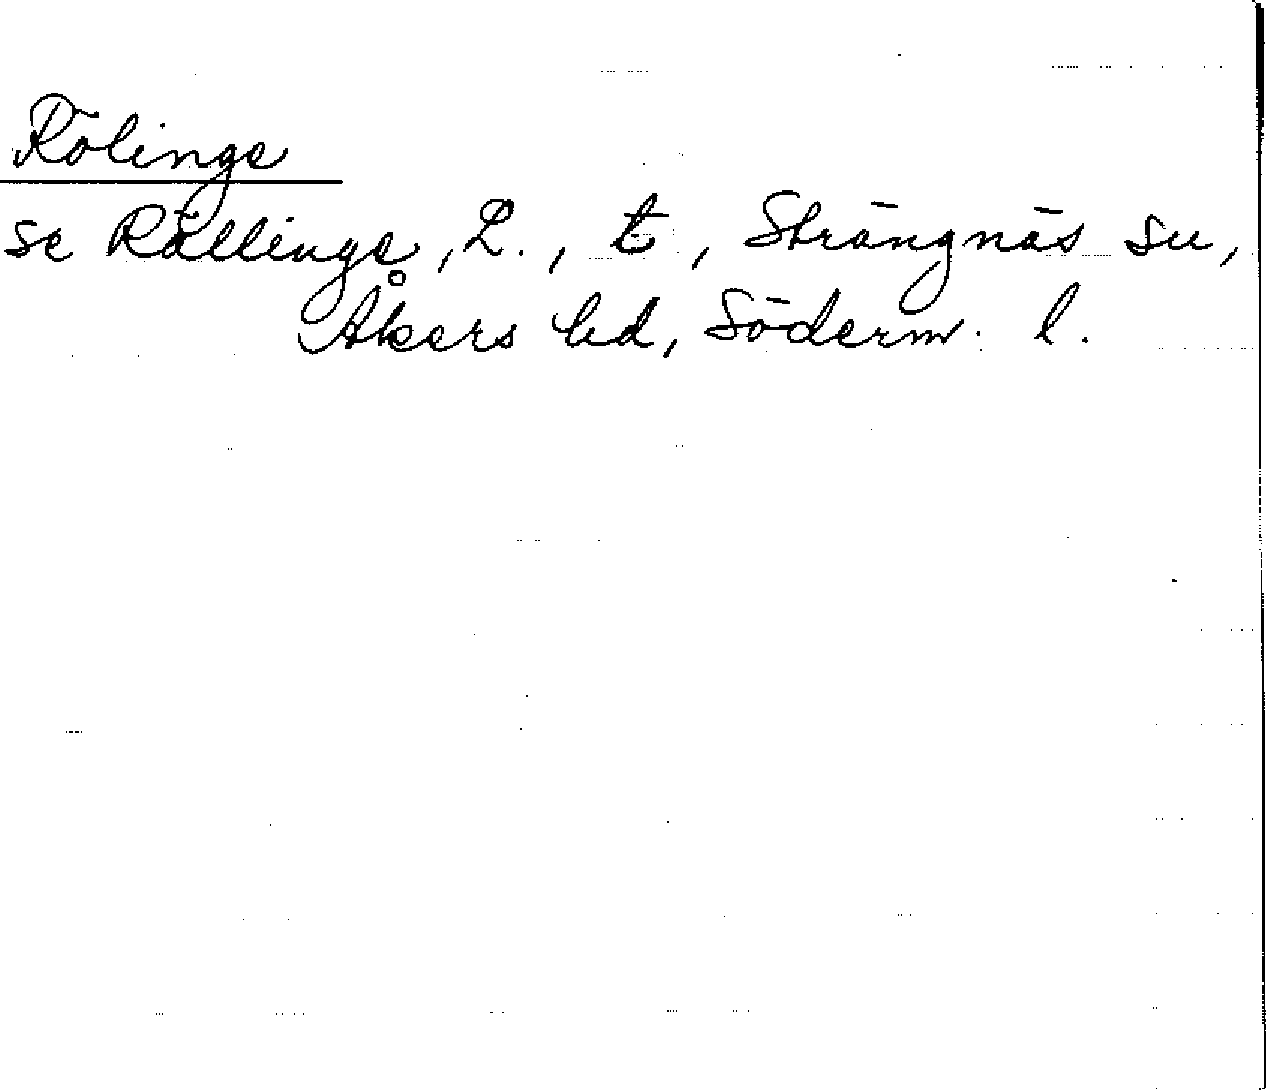 Rölinge
se Rällinge, L., t, Strängnäs sn,
Åkers hd, Söderm. l.